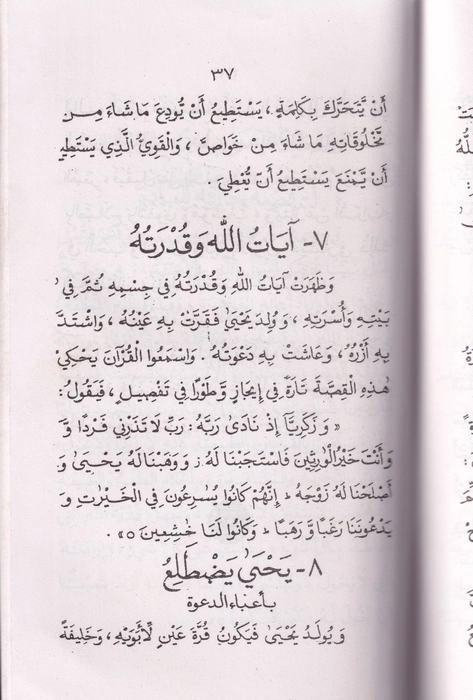 ٣٧
أَنْ يَتَحَرَّكَ بِكَلِمَةٍ، يَسْتَطِيعُ أَنْ يُودِعَ مَا شَاءَ مِنْ
مَخْلُوقَاتِهِ مَا شَاءَ مِنْ خَوَاصَّ، وَالْقَوِيُّ الَّذِي يَسْتَطِيعُ
أَنْ يَمْنَعَ يَسْتَطِيعُ أَنْ يُعْطِيَ.
٧- آيَاتُ اللهِ وَقُدْرَتُهُ
وَظَهَرَتْ آيَاتُ اللهِ وَقُدْرَتُهُ فِي جِسْمِهِ ثُمَّ فِي
بَيْتِهِ وَأُسْرَتِهِ، وَوُلِدَ يَحْيَىٰ فَقَرَّتْ بِهِ عَيْنُهُ، وَاشْتَدَّ
بِهِ أَزْرُهُ، وَعَاشَتْ بِهِ دَعْوَتُهُ. وَاسْمَعُوا الْقُرْآنَ يَحْكِيْ
هٰذِهِ الْقِصَّةَ تَارَةً فِي إِيجَازٍ وَطَوْرًا فِي تَفْصِيلٍ، فَيَقُولُ:
« وَزَكَرِيَّآ إِذْ نَادَىٰ رَبَّهُ: رَبِّ لَا تَذَرْنِي فَرْدًا وَّ
وَأَنْتَ خَيْرُ الْوَارِثِيْنَ فَاسْتَجَبْنَا لَهُ ز وَوَهَبْنَا لَهُ يَحْيَىٰ وَ
أَصْلَحْنَا لَهُ زَوْجَهُ ط إِنَّهُمْ كَانُوا يُسٰرِعُونَ فِي الْخَيْرٰتِ وَ
يَدْعُونَنَا رَغَبًا وَّ رَهَبًا ط وَكَانُوا لَنَا خٰشِعِينَ ٥».
٨- يَحْيَىٰ يَضْطَلِعُ
بأعباء الدعوة
وَ يُولَدُ يَحْيَىٰ فَيَكُونُ قُرَّةَ عَيْنٍ لِأَبَوَيْهِ، وَخَلِيفَةً